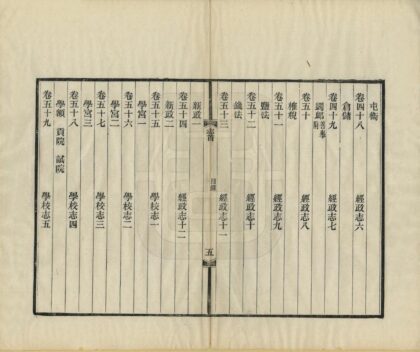 屯衞
卷四十八 經政志六
倉儲
卷四十九 經政志七
蠲卹 善舉附
卷五十 經政志八
榷稅
卷五十一 經政志九
鹽法
卷五十二 經政志十
錢法
卷五十三 經政志十一
新政一
卷五十四 經政志十二
新政二
卷五十五 學校志一
學宮一
卷五十六 學校志二
學宮二
卷五十七 學校志三
學宮三
卷五十八 學校志四
學額 貢院 試院
卷五十九 學校志五
目錄
五